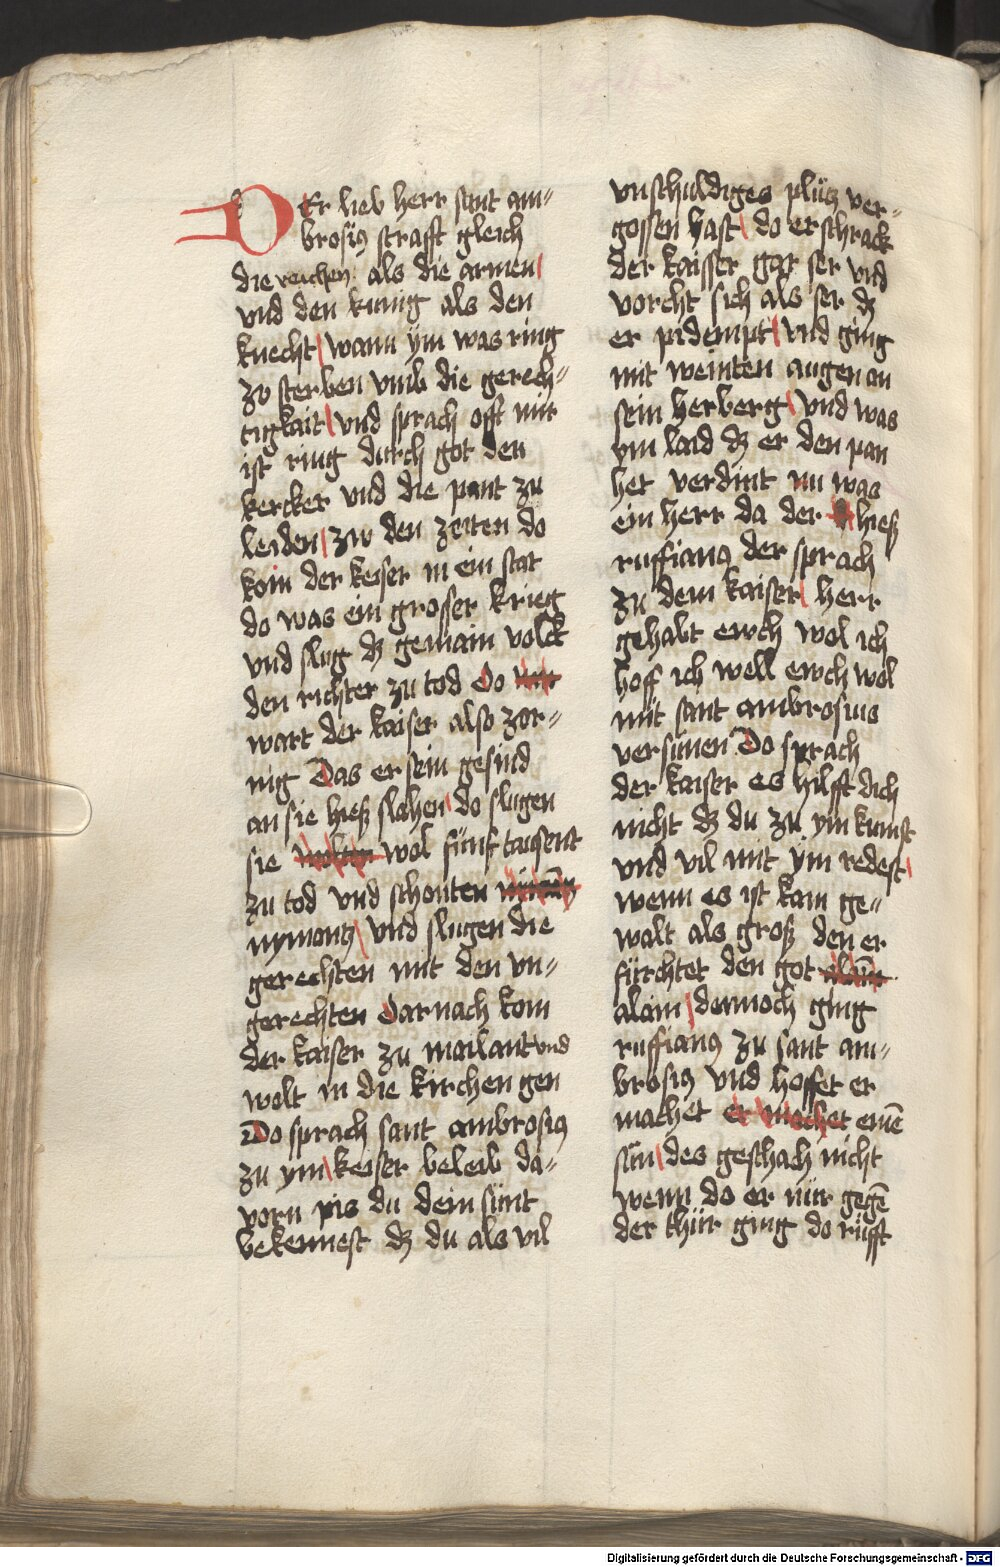 DEr lieb herr sant am=
brosiꝰ strafft gleich
die reichen als die armen
vnd den kunig als den
knecht wann ym was ring
zu sterben vmb die gerech=
tigkait vnd sprach offt mir
ist ring durch got den
kercker vnd die pant zu
leiden zw den zeiten do
kom der keiser in ein stat
do was ein grosser krieg
vnd slug dz gemain volck
den richter zu tod Do
wart der kaiser also zor=
nig Das er sein gesind
an sie hieß slahen do slugen
sie wol fünf tausent
zu tod vnd schonten
nymantz vnd slugen die
gerechten mit den vn=
gerechten Darnach kom
der kaiser zu mailant vnd
wolt in die kirchen gen
Do sprach sant ambrosiꝰ
zu ym keiser beleib da=
vorn pis du dein sünt
bekennest dz du als vil
vnschuldiges plütz ver=
gossen hast do erschrack
der kaisser gar ser vnd
vorcht sich als ser dz
er pidempt vnd ging
mit weinten augen an
sein herberg vnd was
ym laid dz er den pan
het verdint nu was
ein herr da der hieß
ruffianꝰ der sprach
zu dem kaiser herr
gehabt ewch wol ich
hoff ich well ewch wol
mit sant ambrosius
versunen Do sprach
der kaiser es hilfft dich
nicht dz du zu ym kumst
vnd vil mit ym redest
wenn es ist kain ge=
walt als groß den er
fürchtet den got
alain dennoch ging
ruffianꝰ zu sant am=
brosiꝰ vnd hoffet er
machet er machet einē
sün des geschach nicht
wenn do er nür gegē
der thür ging do rüfft
Digitalisierung gefördert durch die Deutsche Forschungsgemeinschaft - DFG